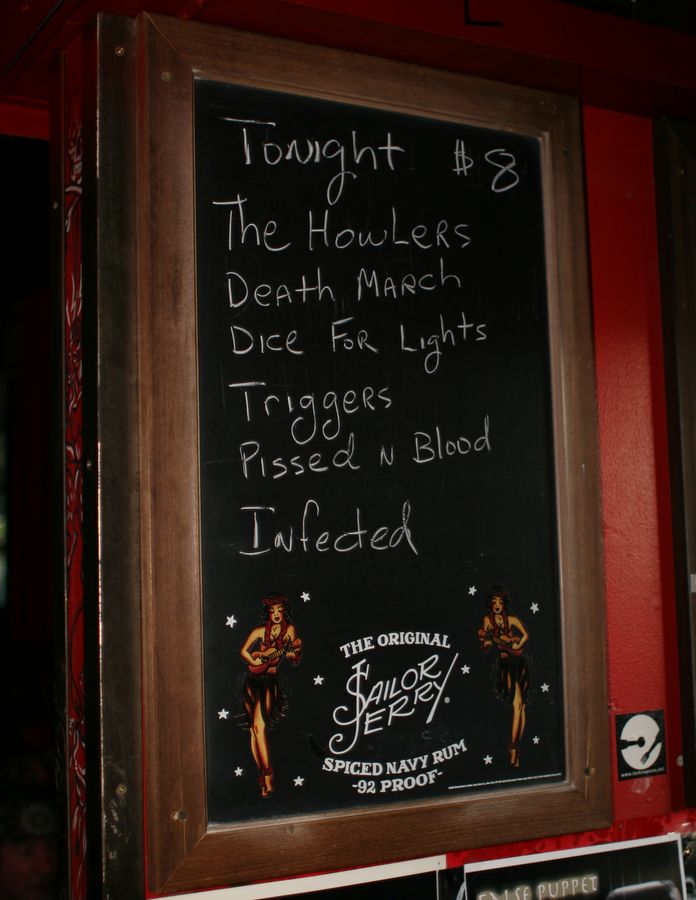 Tonight $8
The Howlers
Death March
Dice For Lights
Triggers
Pissed N Blood
Infected
THE ORIGINAL
SAILOR
JERRY
SPICED NAVY RUM
-92 PROOF-
PUPPET